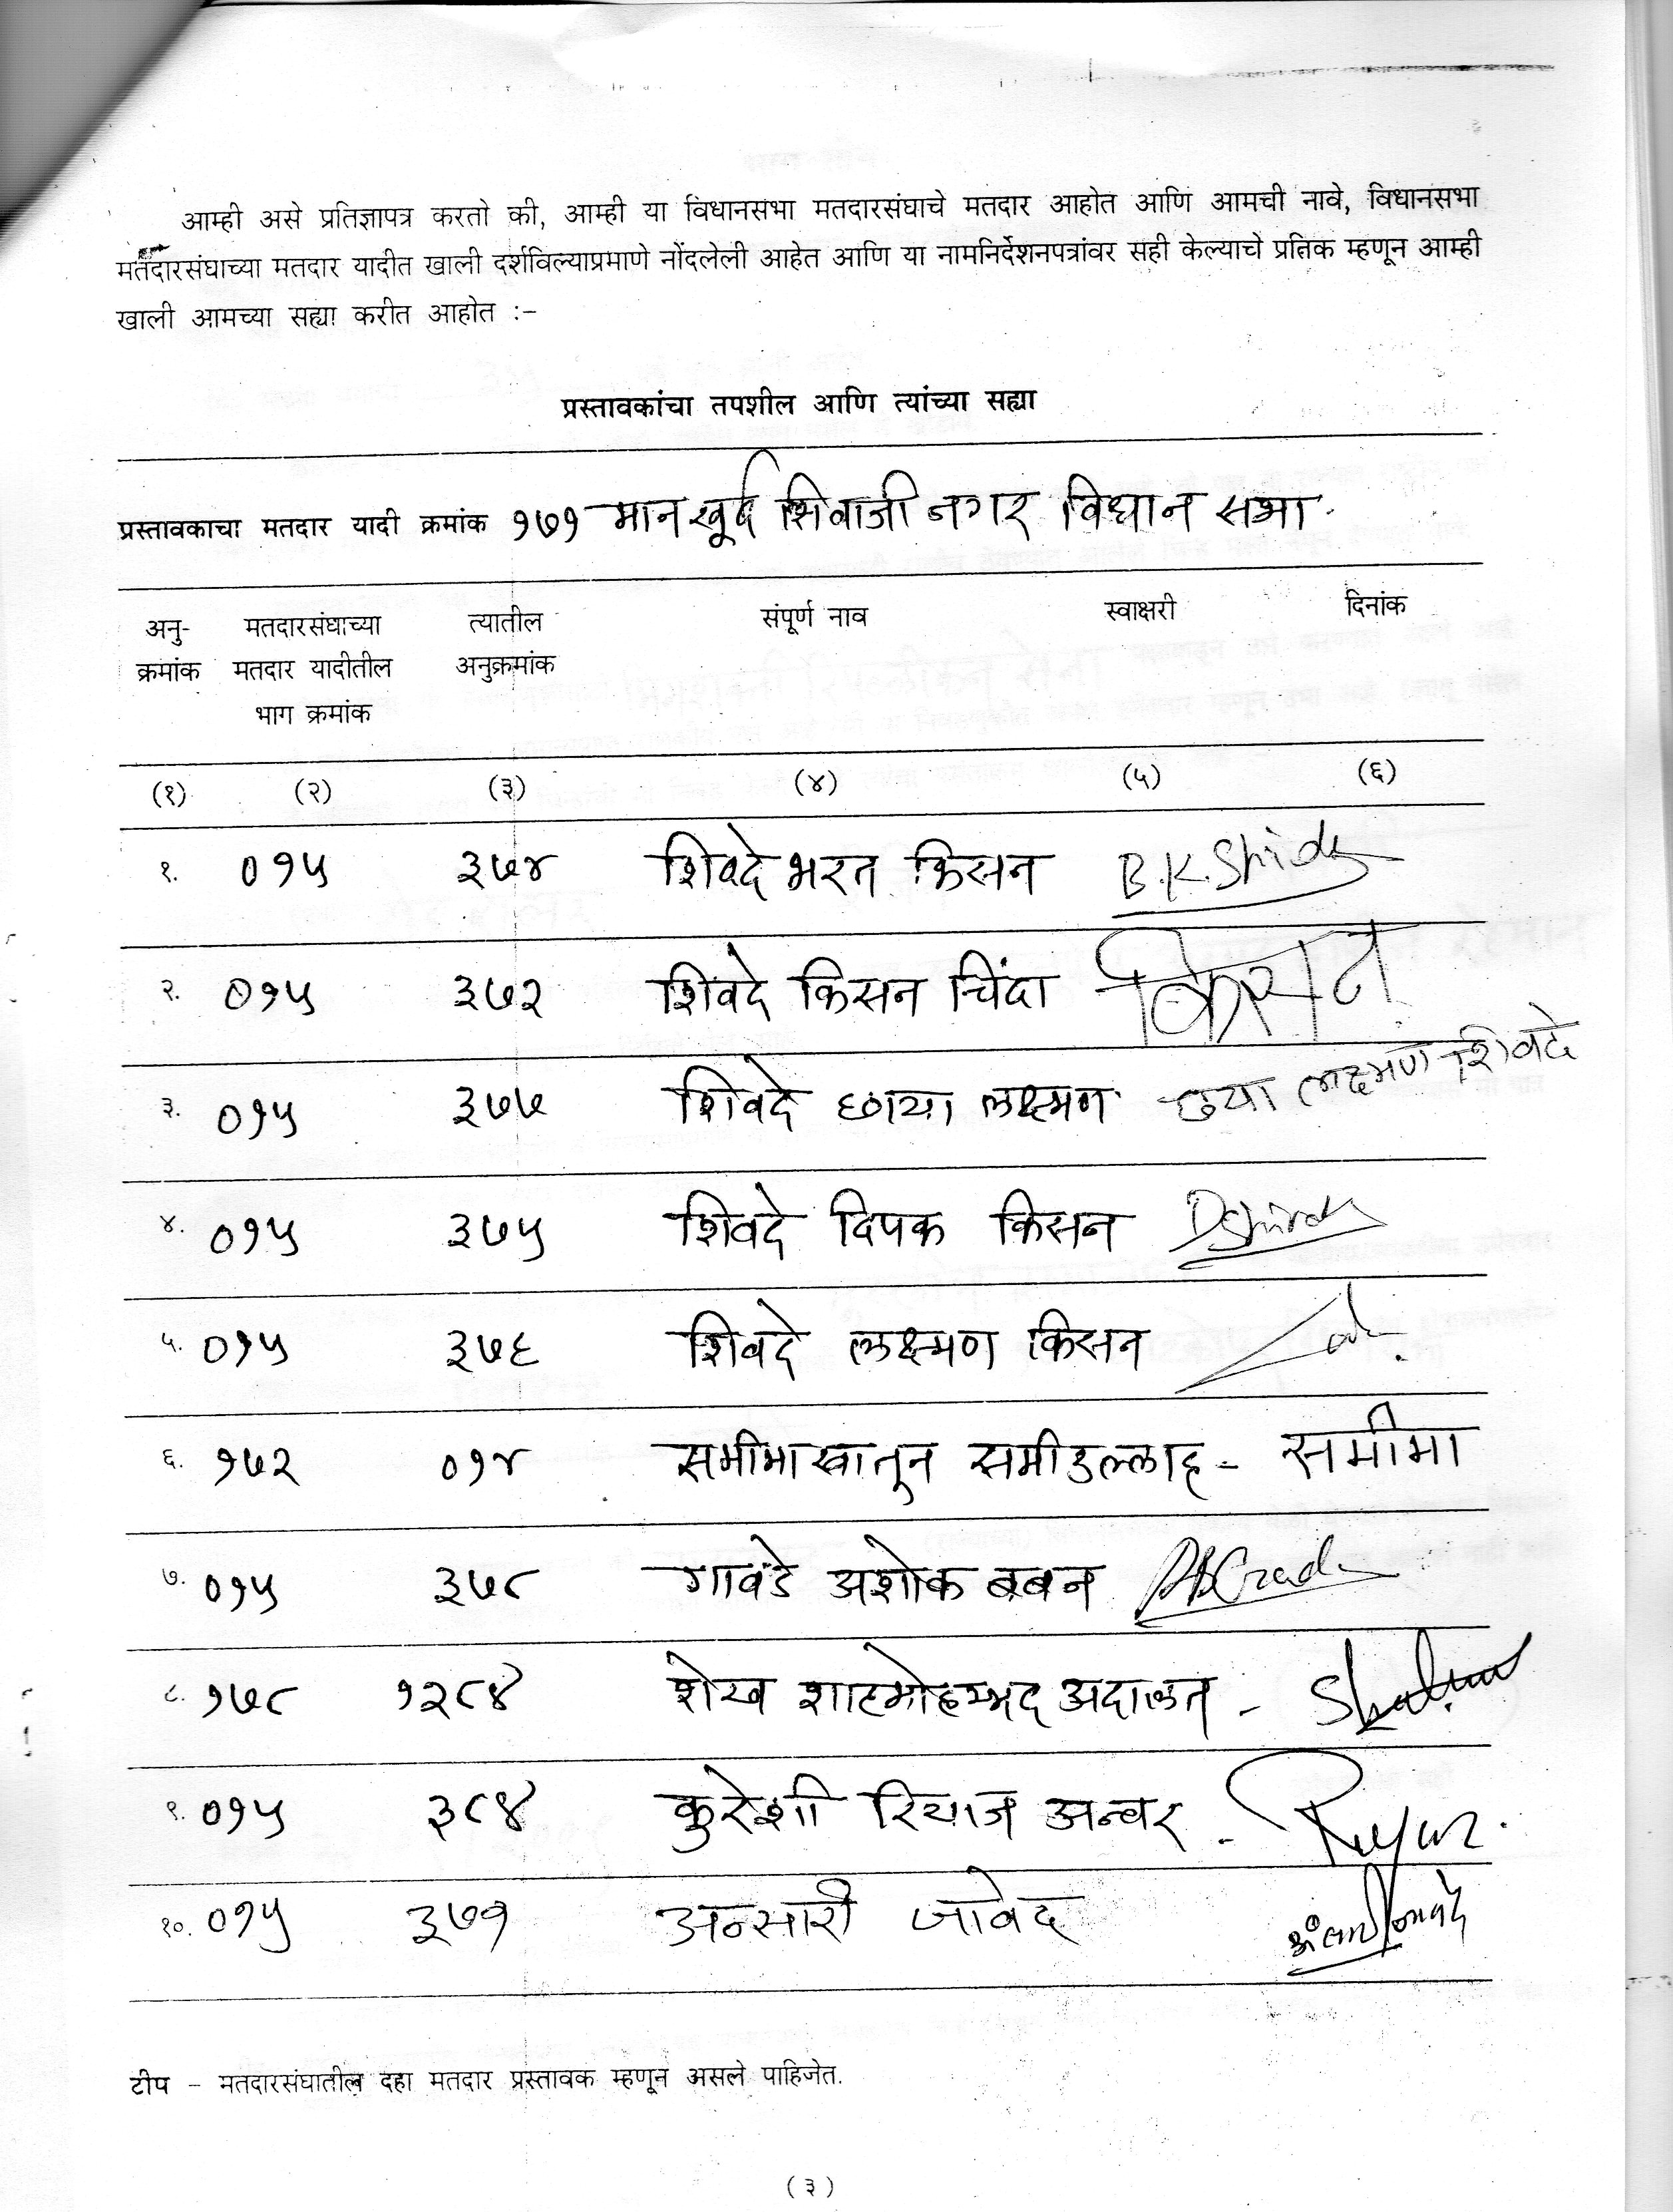 आम्ही असे प्रतिज्ञापत्र करतो की, आम्ही या विधानसभा मतदारसंघाचे मतदार आहोत आणि आमची नावे, विधानसभा
मतदारसंघाच्या मतदार यादीत खाली दर्शविल्याप्रमाणे नोंदलेली आहेत आणि या नामनिर्देशनपत्रांवर सही केल्याचे प्रतिक म्हणून आम्ही
खाली आमच्या सह्या करीत आहोत :-
प्रस्तावकांचा तपशील आणि त्यांच्या सह्या
प्रस्तावकाचा मतदार यादी क्रमांक १७१ मानखूर्द शिवाजी नगर विधान सभा.
अनु- मतदारसंघाच्या त्यातील संपूर्ण नाव स्वाक्षरी दिनांक
क्रमांक मतदार यादीतील अनुक्रमांक
भाग क्रमांक
(१) (२) (३) (४) (५) (६)
१. ०१५ ३७४ शिवदे भरत किसन B.K.Shide
२. ०१५ ३७२ शिवदे किसन चिंदा किसन
३. ०१५ ३७७ शिवदे छाया लक्ष्मण छया लक्ष्मण शिवदे
४. ०१५ ३७५ शिवदे दिपक किसन
५. ०१५ ३७६ शिवदे लक्ष्मण किसन
६. १७२ ०१४ समीमा खातून समीउल्लाह - समीमा
७. ०१५ ३७८ गावडे अशोक बबन
८. १७८ १२८४ शेख शाहमोहम्मद अदालत -
९. ०१५ ३८४ कुरेशी रियाज अन्वर -
१०. ०१५ ३७१ अन्सारी जावेद
टीप - मतदारसंघातील दहा मतदार प्रस्तावक म्हणून असले पाहिजेत.
(३)